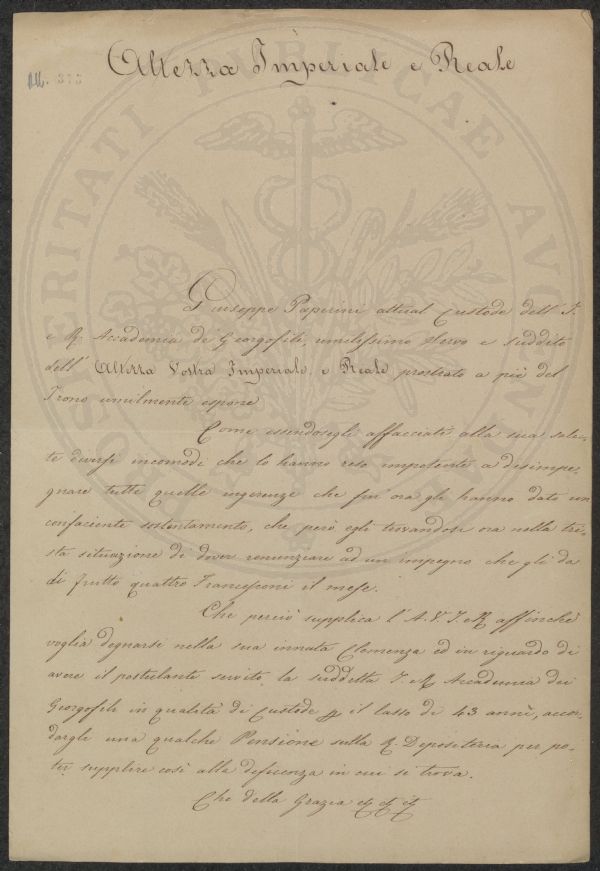 Altezza Imperiale e Reale
All. 373
Giuseppe Paperini attual Custode dell' I.
e R. Accademia de' Georgofili, umilissimo Servo e Suddito
dell' Altezza Vostra Imperiale, e Reale prostrato a piè del
Trono umilmente espone
Come essendosegli affacciati alla sua salu-
te diversi incomodi che lo hanno reso impotente a disimpe-
gnare tutte quelle ingerenze che fin ora gli hanno dato un
confaciente sostentamento, che però egli trovandosi ora nella tri-
sta situazione di dover renunziare ad un impegno che gli da
di frutto quattro Francesconi il mese.
Che perciò supplica l'A. V. I. e R. affinchè
voglia degnarsi nella sua innata Clemenza ed in riguardo di
avere il postulante servito la suddetta I. e R. Accademia dei
Georgofili in qualità di Custode p il lasso di 43 anni, accor-
dargli una qualche Pensione sulla R. Depositeria per po-
ter supplire così alla deficenza in cui si trova.
Che della Grazia &c &c &c
PROSPERITATI PUBLICAE AUGENDAE